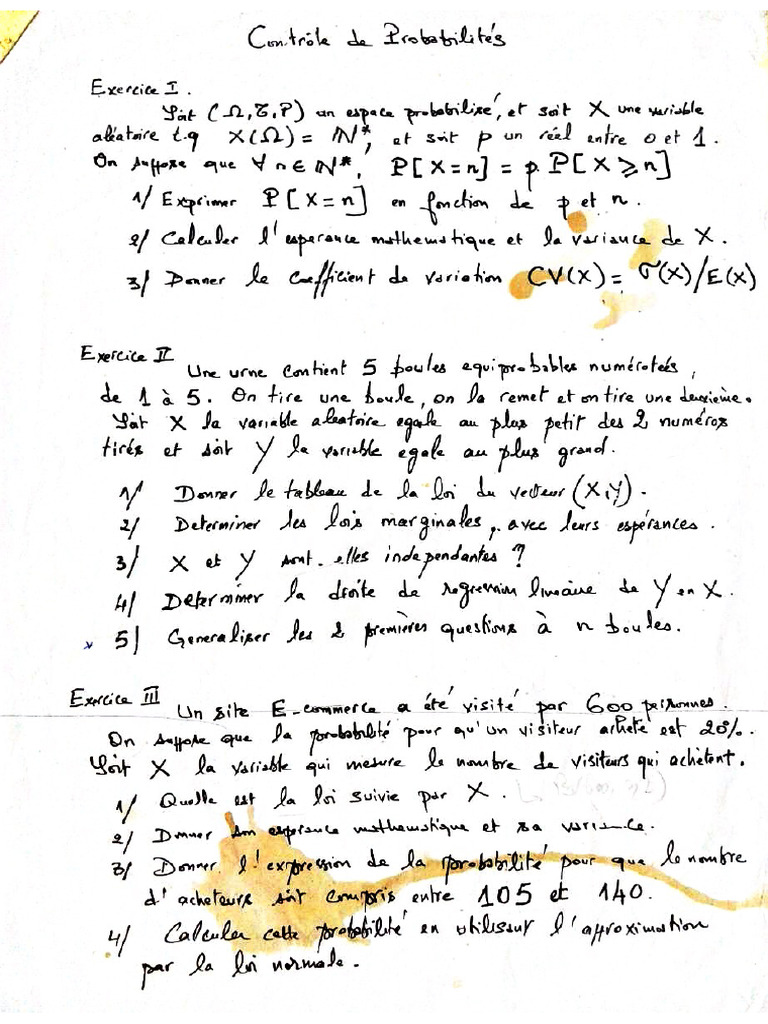 Contrôle de Probabilités
Exercice I.
Soit (Ω, 𝒯, P) un espace probabilisé, et soit X une variable
aléatoire t.q X(Ω) = ℕ*, et soit p un réel entre 0 et 1.
On suppose que ∀ n ∈ ℕ*, P[X=n] = p. P[X ⩾ n]
1/ Exprimer P[X=n] en fonction de p et n.
2/ Calculer l'esperance mathematique et la variance de X.
3/ Donner le coefficient de variation CV(X) = σ(X)/E(X)
Exercice II
Une urne contient 5 boules equiprobables numérotées,
de 1 à 5. On tire une boule, on la remet et on tire une deuxième.
Soit X la variable aleatoire egale au plus petit des 2 numéros
tirés et soit Y la variable egale au plus grand.
1/ Donner le tableau de la loi du vecteur (X,Y).
2/ Determiner les lois marginales, avec leurs espérances.
3/ X et Y sont-elles independantes ?
4/ Determiner la droite de regression linéaire de Y en X.
* 5/ Generaliser les 2 premières questions à n boules.
Exercice III
Un site E-commerce a été visité par 600 personnes.
On suppose que la probabilité pour qu'un visiteur achete est 20%.
Soit X la variable qui mesure le nombre de visiteurs qui achètent.
1/ Quelle est la loi suivie par X.
2/ Donner son esperance mathematique et sa variance.
3/ Donner l'expression de la probabilité pour que le nombre
d'acheteurs soit compris entre 105 et 140.
4/ Calculer cette probabilité en utilisant l'approximation
par la loi normale.